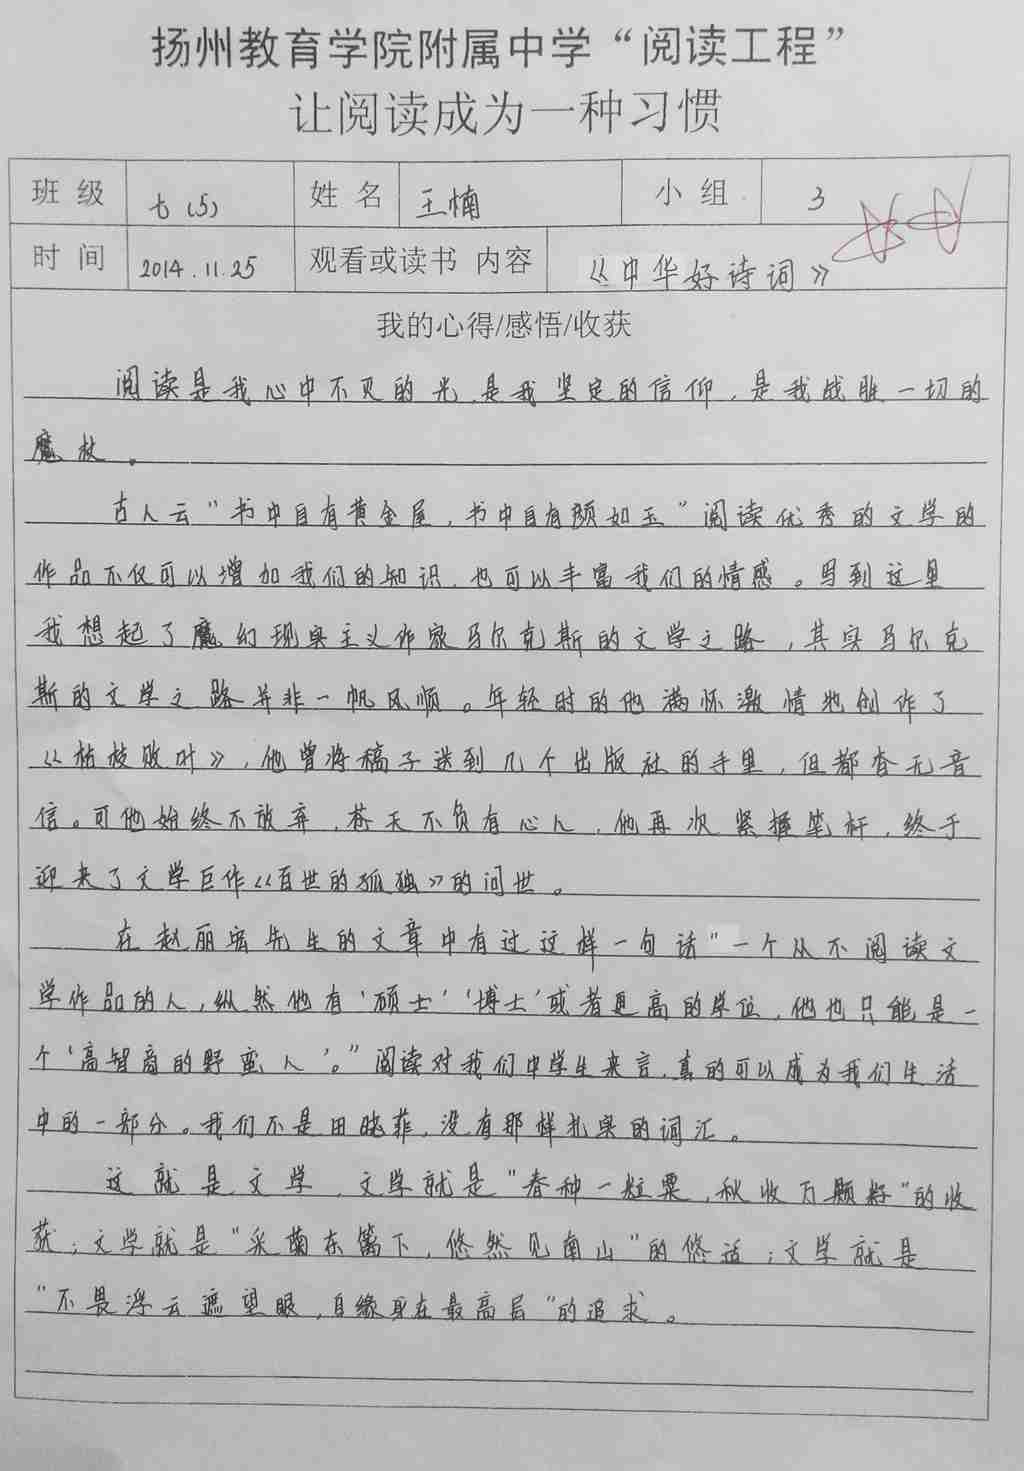 扬州教育学院附属中学“阅读工程”
让阅读成为一种习惯
班级 七(5) 姓名 王楠 小组 3
时间 2014.11.25 观看或读书 内容 《中华好诗词》
我的心得/感悟/收获
阅读是我心中不灭的光,是我坚定的信仰,是我战胜一切的
魔杖。
古人云“书中自有黄金屋,书中自有颜如玉”阅读优秀的文学的
作品不仅可以增加我们的知识,也可以丰富我们的情感。写到这里
我想起了魔幻现实主义作家马尔克斯的文学之路,其实马尔克
斯的文学之路并非一帆风顺。年轻时的他满怀激情地创作了
《枯枝败叶》,他曾将稿子送到几个出版社的手里,但都杳无音
信。可他始终不放弃,苍天不负有心人,他再次紧握笔杆,终于
迎来了文学巨作《百世的孤独》的问世。
在赵丽宏先生的文章中有过这样一句话“一个从不阅读文
学作品的人,纵然他有‘硕士’‘博士’或者更高的学位,他也只能是一
个‘高智商的野蛮人’。”阅读对我们中学生来言,真的可以成为我们生活
中的一部分。我们不是田晓菲,没有那样扎实的词汇。
这就是文学,文学就是“春种一粒粟,秋收万颗籽”的收
获;文学就是“采菊东篱下,悠然见南山”的悠适;文学就是
“不畏浮云遮望眼,自缘身在最高层”的追求。